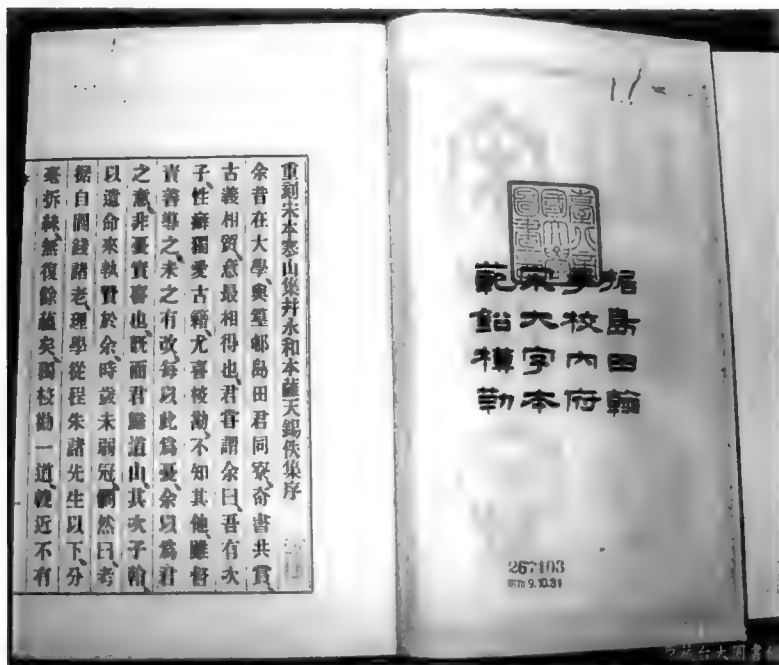 据島田翰
手校內府
宋大字本
範鉛 勒
臺北帝
國大學
圖書印
267103
昭和 9.10.31
重刻宋本寒山集幷永和本薩天錫佚集序
余昔在大學、與篁邨島田君同寮、奇書共賞、
古義相質、意最相得也、君嘗謂余曰、吾有次
子、性癖獨愛古籍、尤喜校勘、不知其他、雖督
責善導之、未之有改、每以此爲憂、余以爲君
之意、非憂實喜也、既而君歸道山、其次子翰
以遺命來執贄於余、時歲未弱冠、 然曰、考
據自閻錢諸老、理學從程朱諸先生以下、分
毫析縷、無復餘蘊矣、獨校勘一道、輓近不有